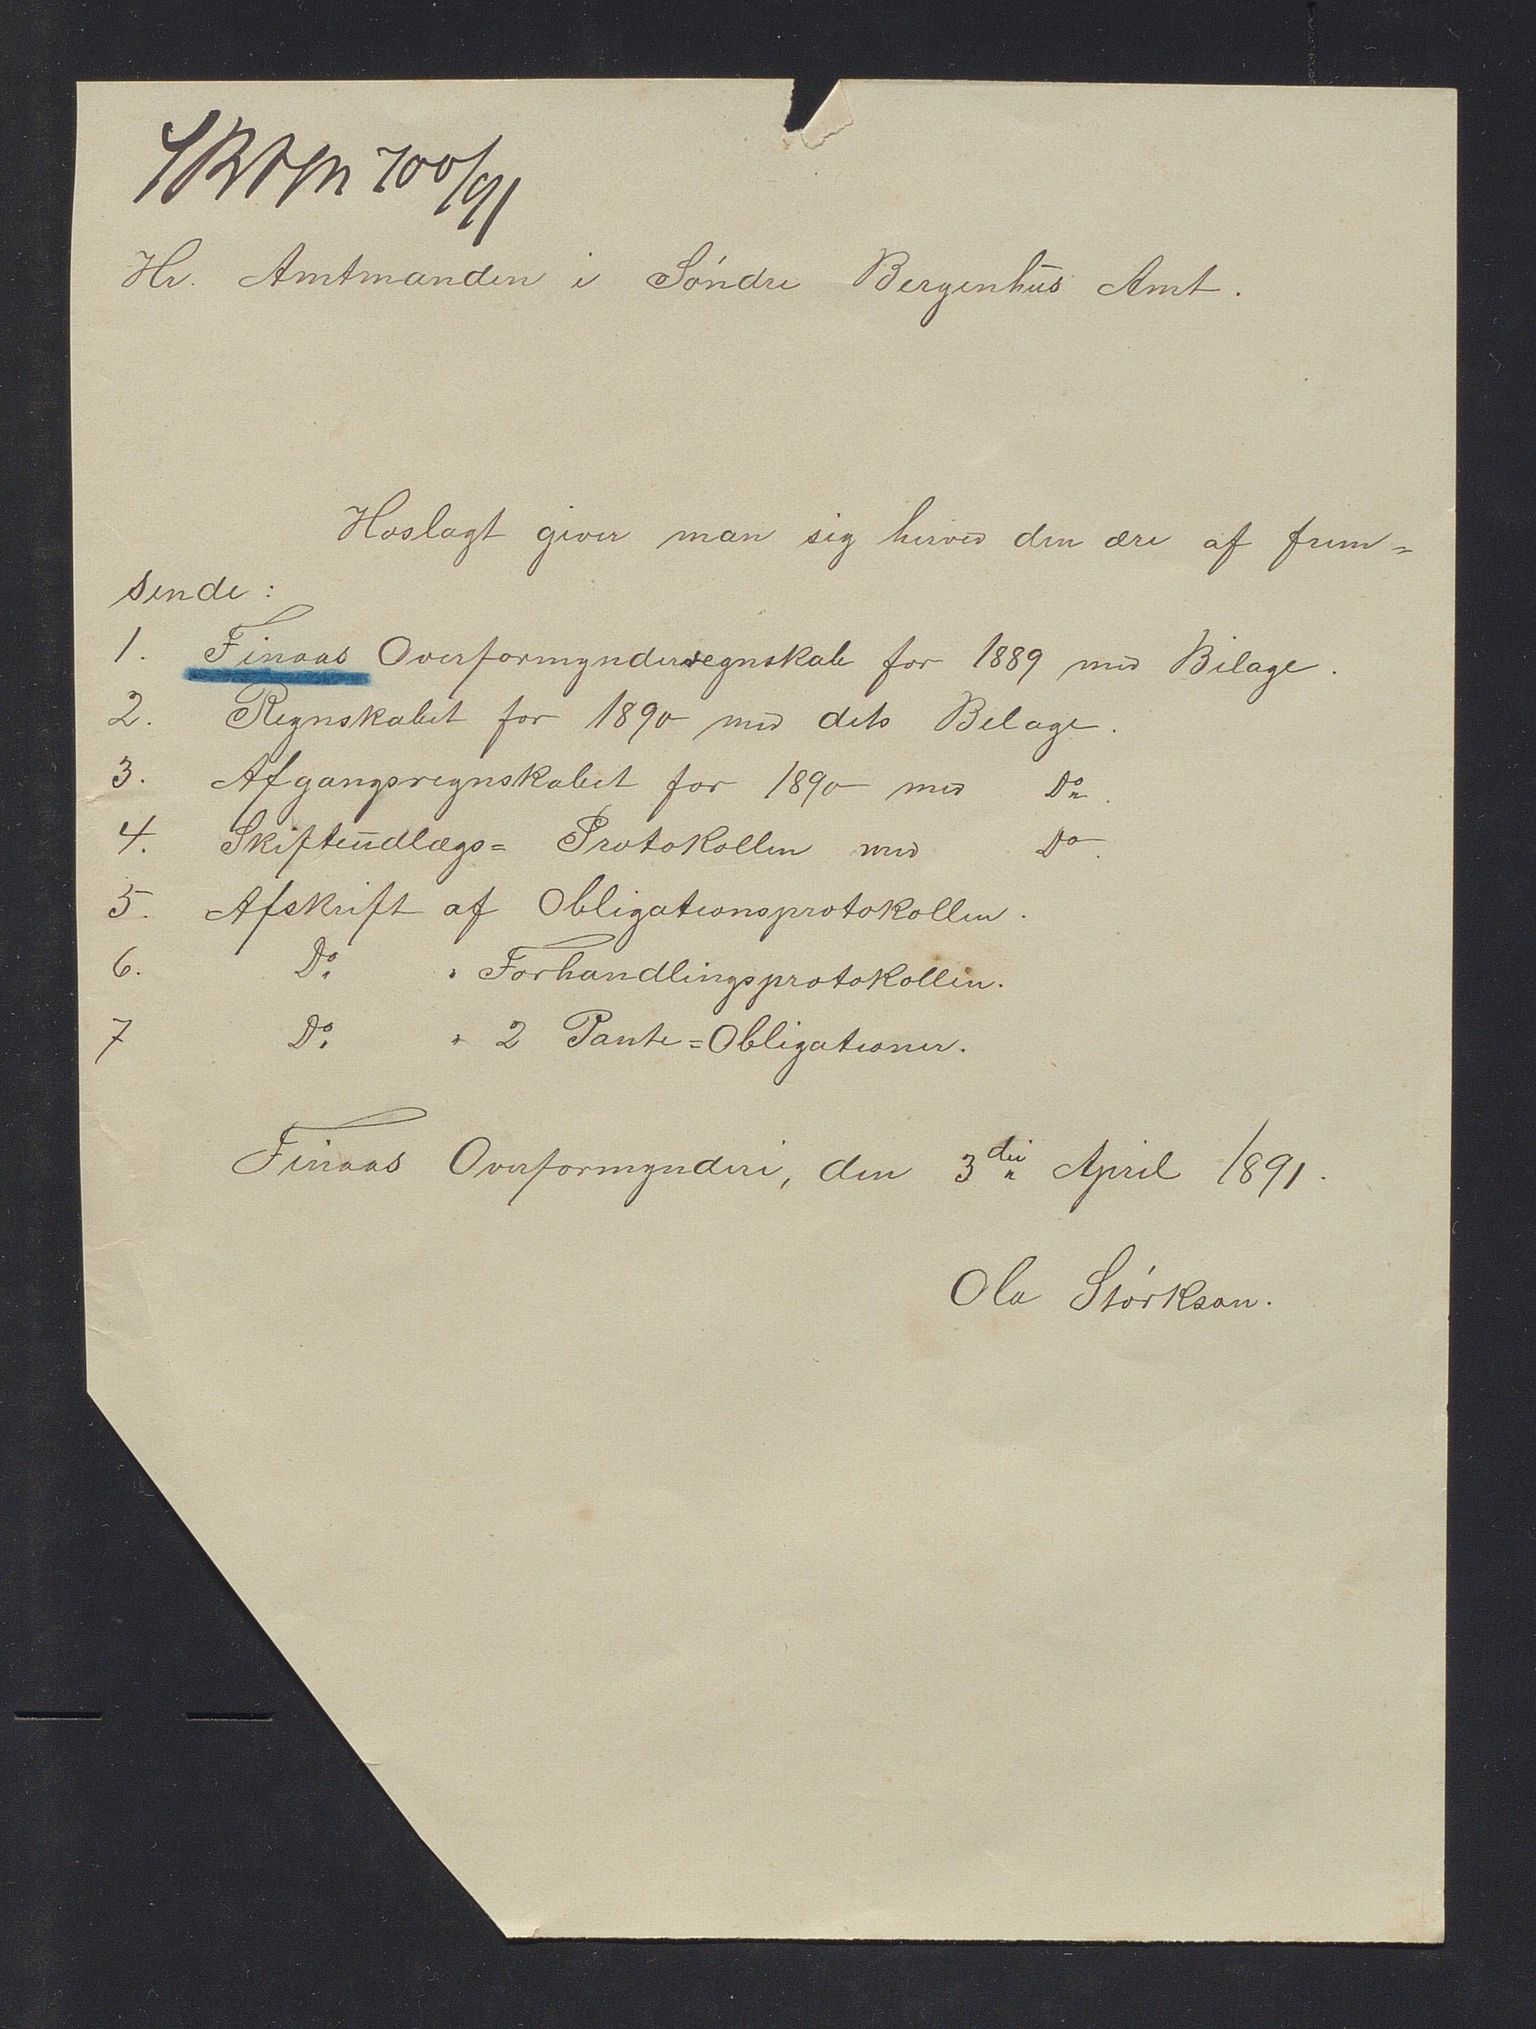 700/91
Hr. Amtmanden i Søndre Bergenhus Amt.
Hoslagt giver man sig herved den ære af frem=
sende:
1. Finaas Overformynderregnskab for 1889 med Bilage.
2. Regnskabet for 1890 med dets Bilage.
3. Afgangsregnskabet for 1890 med Do.
4. Skifteudlægs= Protokollen med Do.
5. Afskrift af Obligationsprotokollen.
6. Do. " Forhandlingsprotokollen.
7 Do. " 2 Pante=Obligationer.
Finaas Overformynderi, den 3die April 1891.
Ola Størkson.